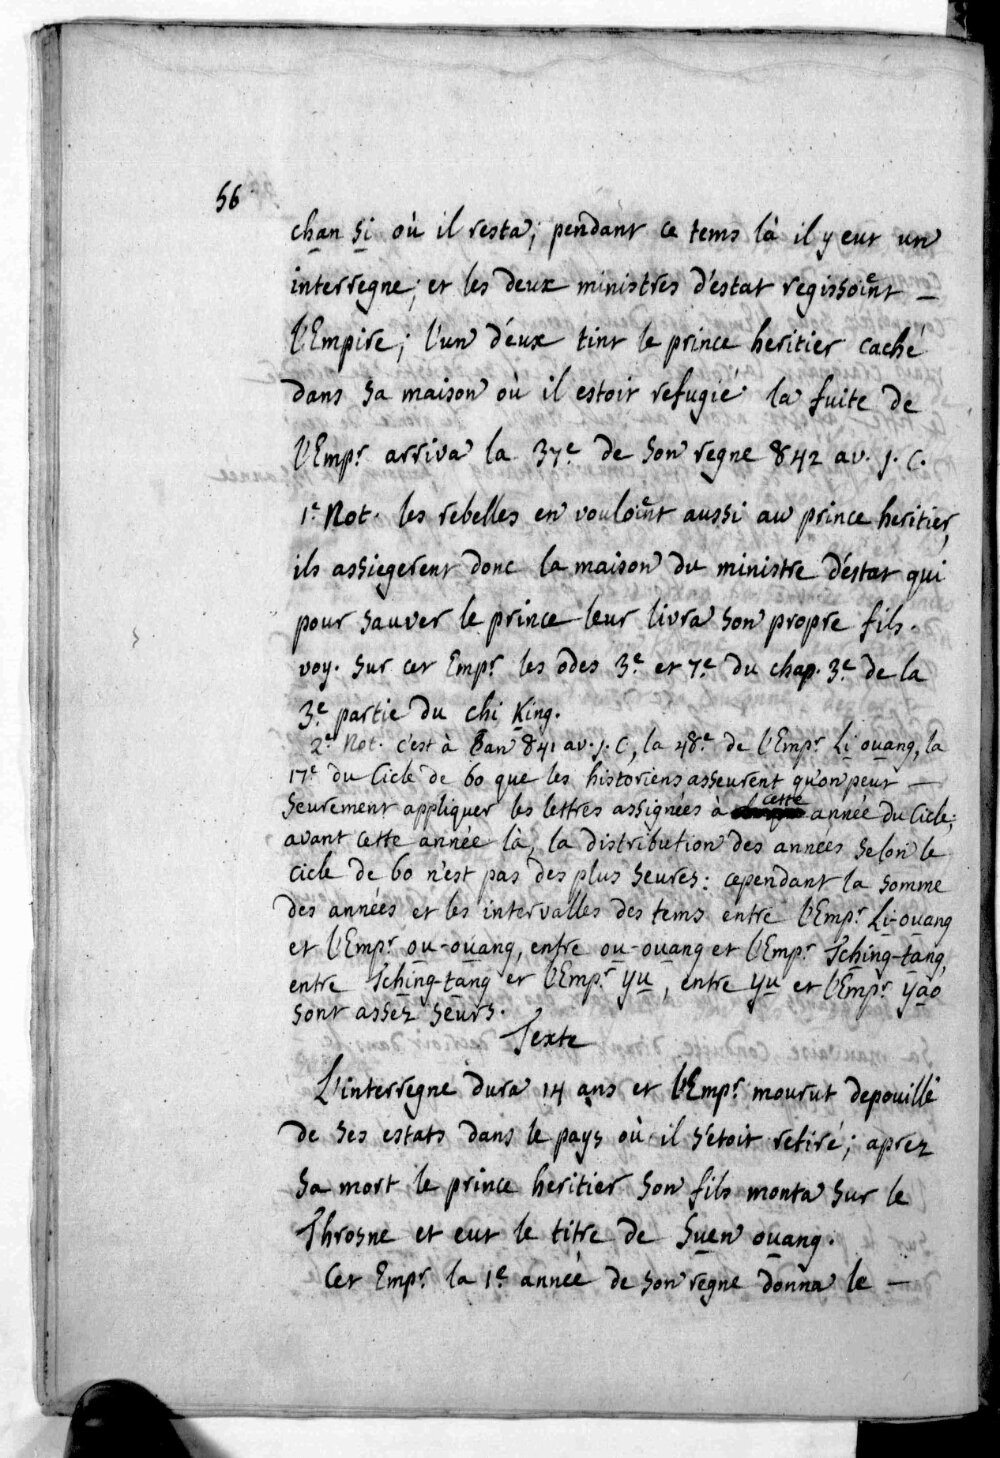 56
chan si où il resta; pendant ce tems là il y eut un
interregne; et les deux ministres d'estat regissoient
l'Empire; l'un d'eux tint le prince heritier caché
dans sa maison où il estoit refugié la fuite de
l'Empr. arriva la 37e de son regne 842 av. J. C.
1e Not. les rebelles en vouloient aussi au prince heritier,
ils assiegerent donc la maison du ministre d'estat qui
pour sauver le prince leur livra son propre fils.
voy. sur cet Empr. les odes 3e et 7e du chap. 3e de la
3e partie du chi King.
2e Not. c'est à l'an 841 av. J. C, la 48e de l'Empr. Li ouang, la
17e du Cicle de 60 que les historiens asseurent qu'on peut
seurement appliquer les lettres assignées à cette année du Cicle;
avant cette année là, la distribution des années selon le
cicle de 60 n'est pas des plus seures: cependant la somme
des années et les intervalles des tems entre l'Empr. Li-ouang
et l'Empr. ou-ouang, entre ou-ouang et l'Empr. Tching-tang,
entre Tching-tang et l'Empr. yu, entre yu et l'Empr. yao
sont assez seurs.
Texte
L'interregne dura 14 ans et l'Empr. mourut depouillé
de ses estats dans le pays où il s'etoit retiré; aprez
sa mort le prince heritier son fils monta sur le
Throsne et eut le titre de Suen ouang.
Cet Empr. la 1e année de son regne donna le